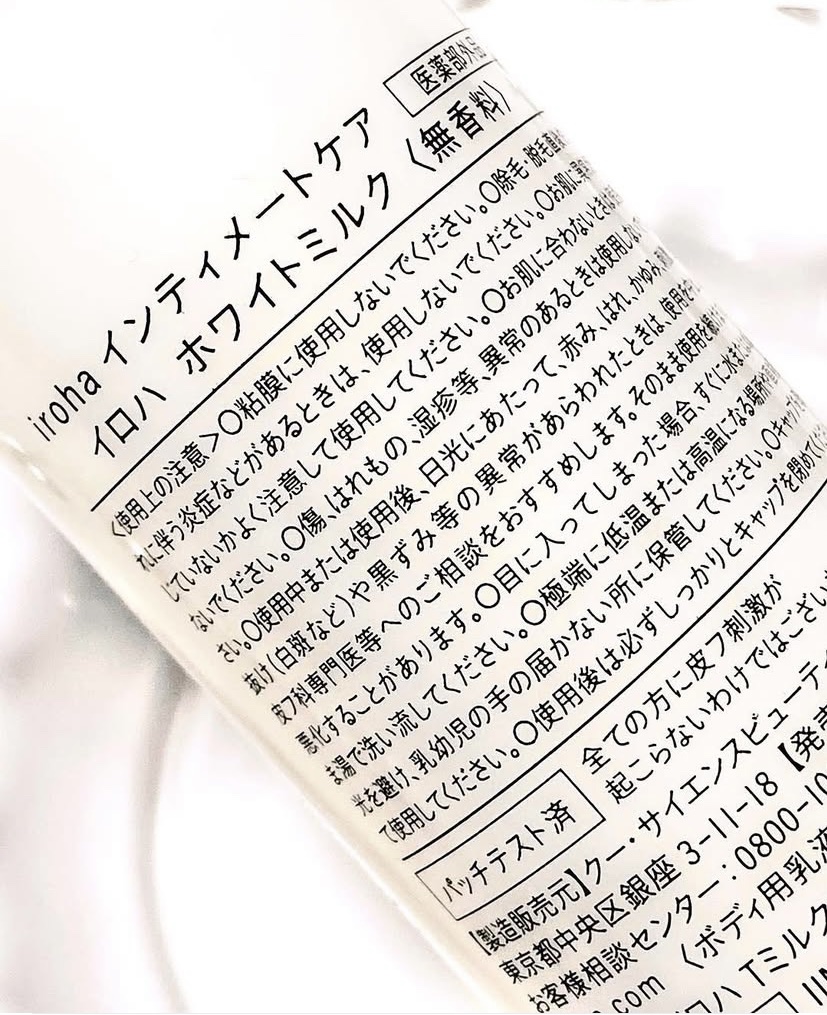 医薬部外品
iroha インティメートケア
イロハ ホワイトミルク〈無香料〉
〈使用上の注意〉○粘膜に使用しないでください。○除毛・脱毛直後
れに伴う炎症などがあるときは、使用しないでください。○お肌に異常
していないかよく注意して使用してください。○お肌に合わないときは
ないでください。○傷、はれもの、湿疹等、異常のあるときは使用しない
さい。○使用中または使用後、日光にあたって、赤み、はれ、かゆみ、
抜け(白斑など)や黒ずみ等の異常があらわれたときは、使用を
皮フ科専門医等へのご相談をおすすめします。そのまま使用を続
悪化することがあります。○目に入ってしまった場合、すぐに水また
ま湯で洗い流してください。○極端に低温または高温になる場所や
光を避け、乳幼児の手の届かない所に保管してください。○キャップを
て使用してください。○使用後は必ずしっかりとキャップを閉めて
パッチテスト済
全ての方に皮フ刺激が
起こらないわけではござい
【製造販売元】クー・サイエンスビューティ
東京都中央区銀座 3-11-18【発売
お客様相談センター:0800-10
.com 〈ボディ用乳液
イロハ Tミルク